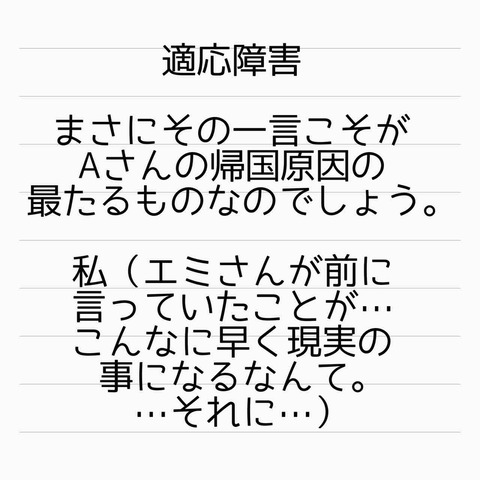 適応障害
まさにその一言こそが
Aさんの帰国原因の
最たるものなのでしょう。
私（エミさんが前に
言っていたことが…
こんなに早く現実の
事になるなんて。
…それに…）